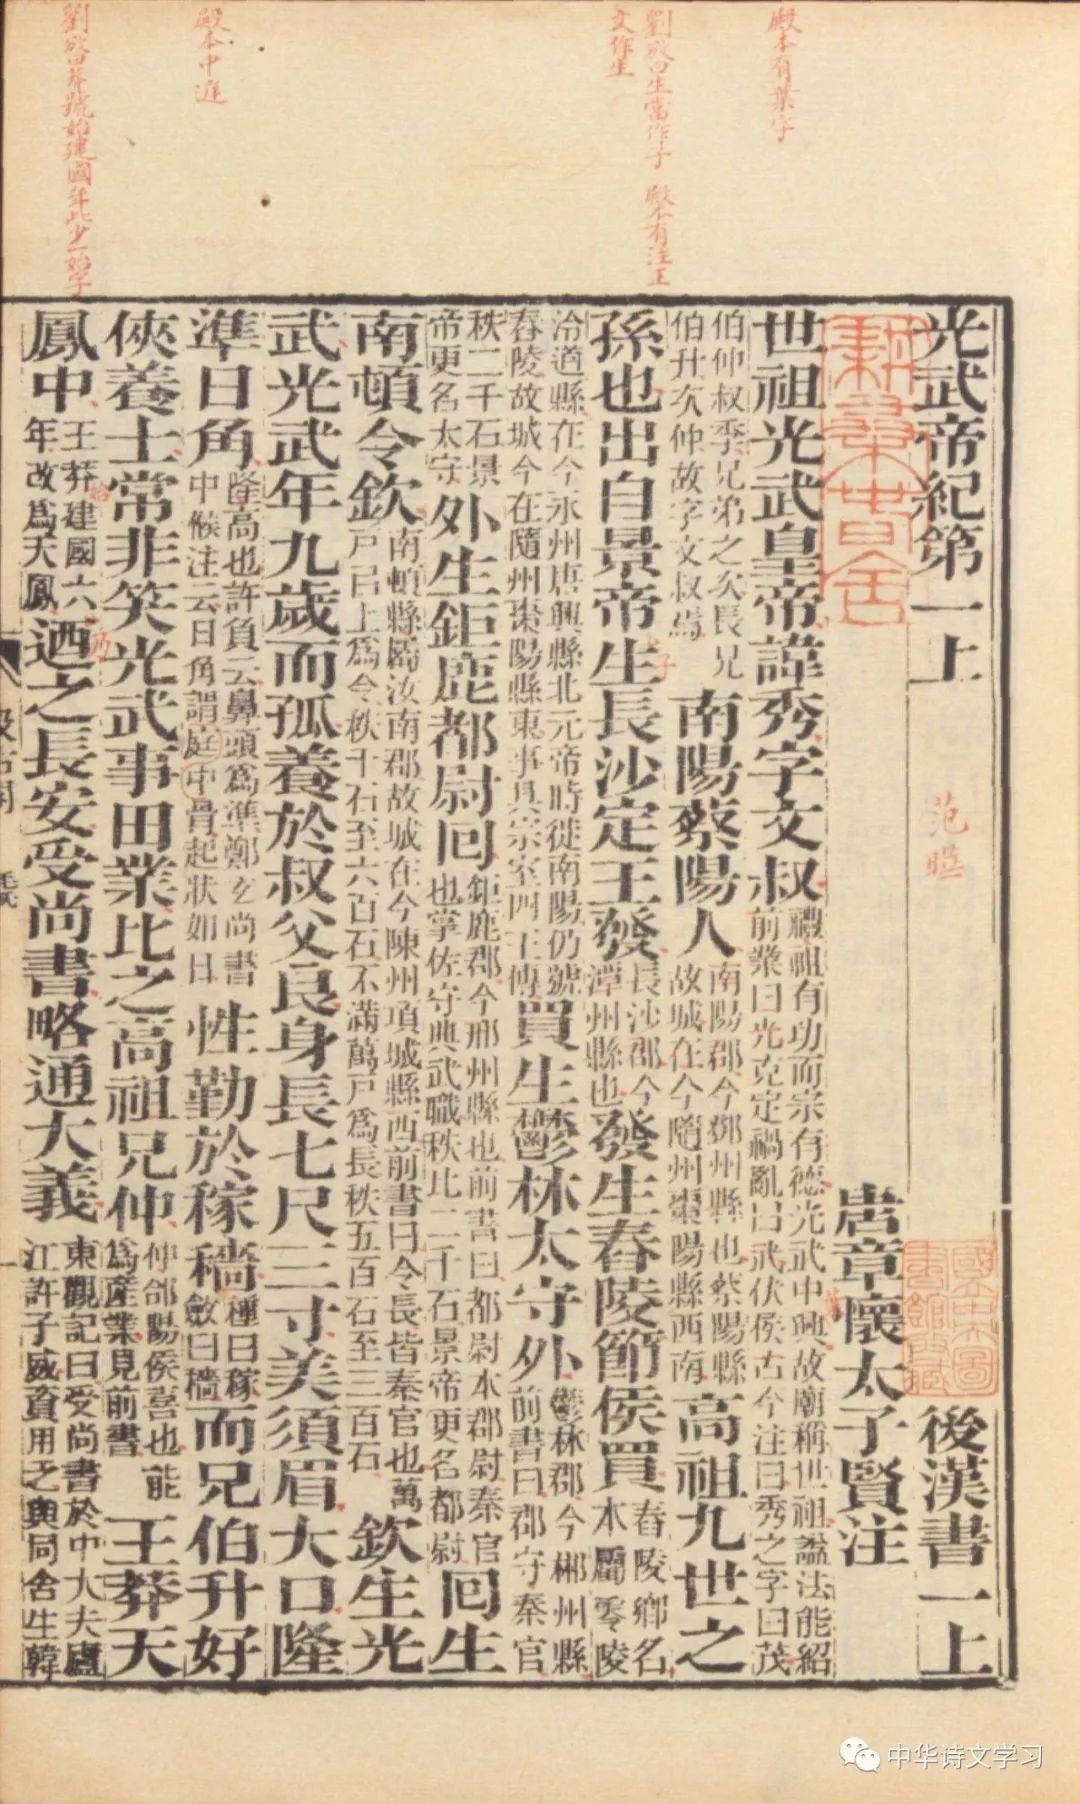 殿本有葉字
劉攽曰生當作子 殿本有注正
文作生
殿本中庭
劉攽曰莽號始建國年此少一始字
光武帝紀第一上 後漢書一上
范曄
唐章懷太子賢注
世祖光武皇帝諱秀字文叔 禮祖有功而宗有德光武中興故廟稱世祖謚法能紹前業曰光克定禍亂曰武伏侯古今注曰秀之字曰茂
伯仲叔季兄弟之次長兄伯升次仲故字文叔焉 南陽蔡陽人 南陽郡今鄧州縣也蔡陽縣故城在今隨州棗陽縣西南 高祖九世之
孫也出自景帝生長沙定王發 長沙郡今潭州縣也 發生舂陵節侯買 舂陵鄉名本屬零陵
泠道縣在今永州唐興縣北元帝時徙南陽仍號舂陵故城今在隨州棗陽縣東事具宗室四王傳 買生鬱林太守外 鬱林郡今郴州縣前書曰郡守秦官
秩二千石景帝更名太守 外生鉅鹿都尉回 鉅鹿郡今邢州縣也前書曰都尉本郡尉秦官也掌佐守典武職秩比二千石景帝更名都尉 回生
南頓令欽 南頓縣屬汝南郡故城在今陳州項城縣西前書曰令長皆秦官也萬戶已上爲令秩千石至六百石不滿萬戶爲長秩五百石至三百石 欽生光
武光武年九歲而孤養於叔父良身長七尺三寸美須眉大口隆
準日角 隆高也許負云鼻頭爲準鄭玄尚書中候注云日角謂庭中骨起狀如日 性勤於稼穡 種曰稼斂曰穡 而兄伯升好
俠養士常非笑光武事田業比之高祖兄仲 仲郃陽侯喜也能爲產業見前書 王莽天
鳳中 王莽建國六年改爲天鳳 迺之長安受尚書略通大義 東觀記曰受尚書於中大夫廬江許子威資用乏與同舍生韓
中华诗文学习